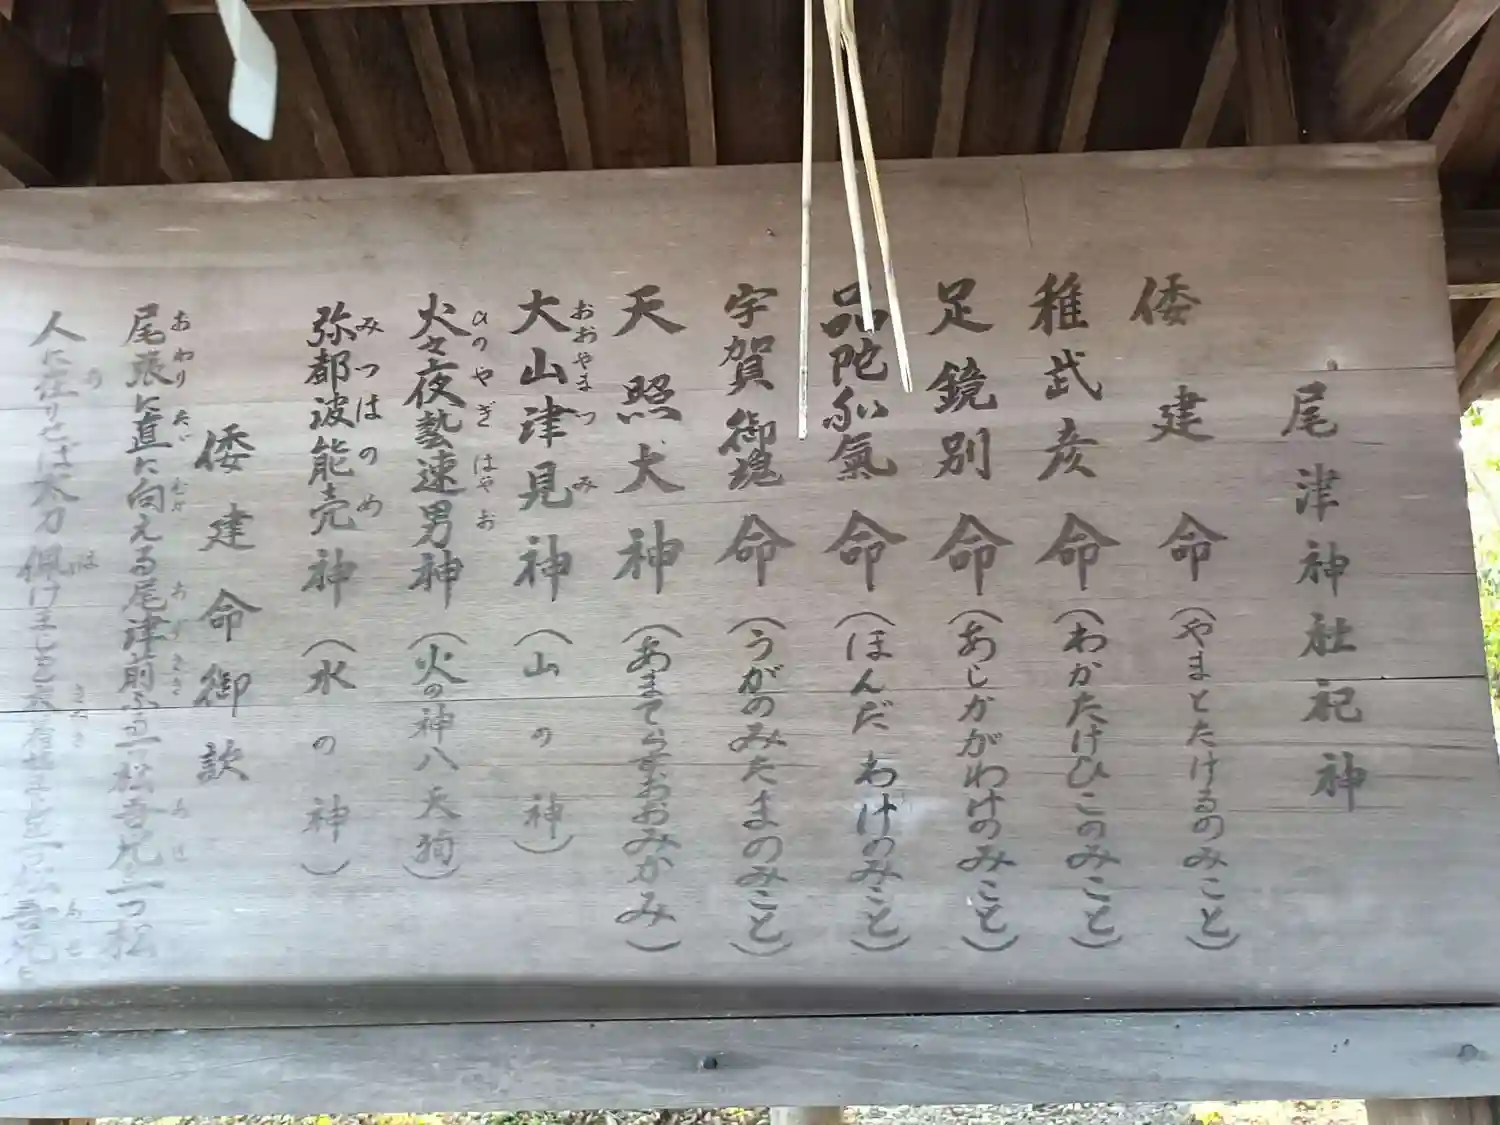 尾津神社祀神
倭建命（やまとたけるのみこと）
稚武彦命（わかたけひこのみこと）
足鏡別命（あしかがわけのみこと）
品陀和氣命（ほんだわけのみこと）
宇賀御魂命（うがのみたまのみこと）
天照大神（あまてらすおおみかみ）
大山津見神（山の神）
火々夜藝速男神（火の神八天狗）
弥都波能売神（水の神）
倭建命御歌
尾張に直に向える尾津前なる一松吾兄一つ松
人に在りせば太刀佩けましを衣着せましを一松吾兄を